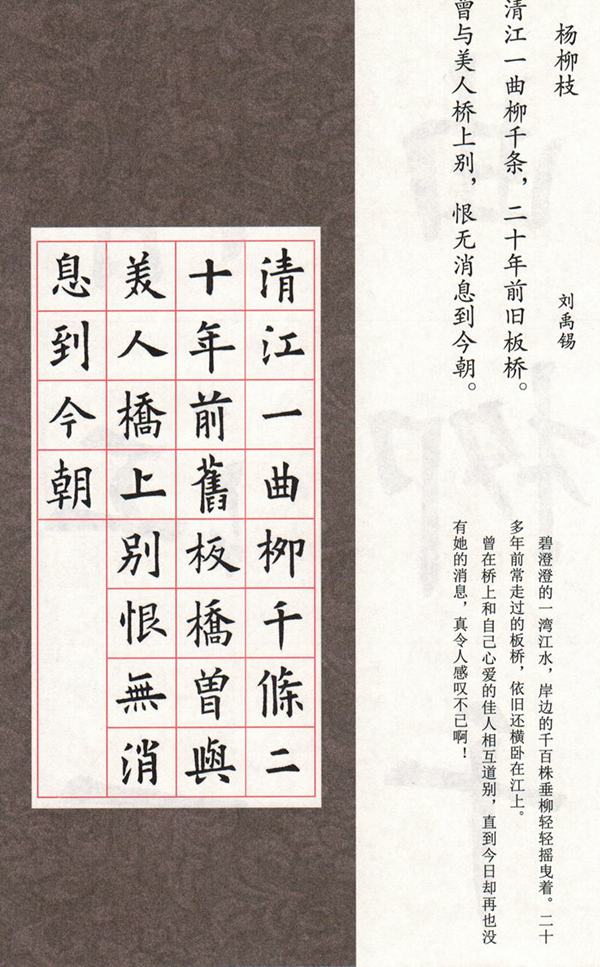 杨柳枝
刘禹锡
清江一曲柳千条，二十年前旧板桥。
曾与美人桥上别，恨无消息到今朝。
碧澄澄的一湾江水，岸边的千百株垂柳轻轻摇曳着。二十
多年前常走过的板桥，依旧还横卧在江上。
曾在桥上和自己心爱的佳人相互道别，直到今日却再也没
有她的消息，真令人感叹不已啊！
清江一曲柳千條二
十年前舊板橋曾與
美人橋上别恨無消
息到今朝